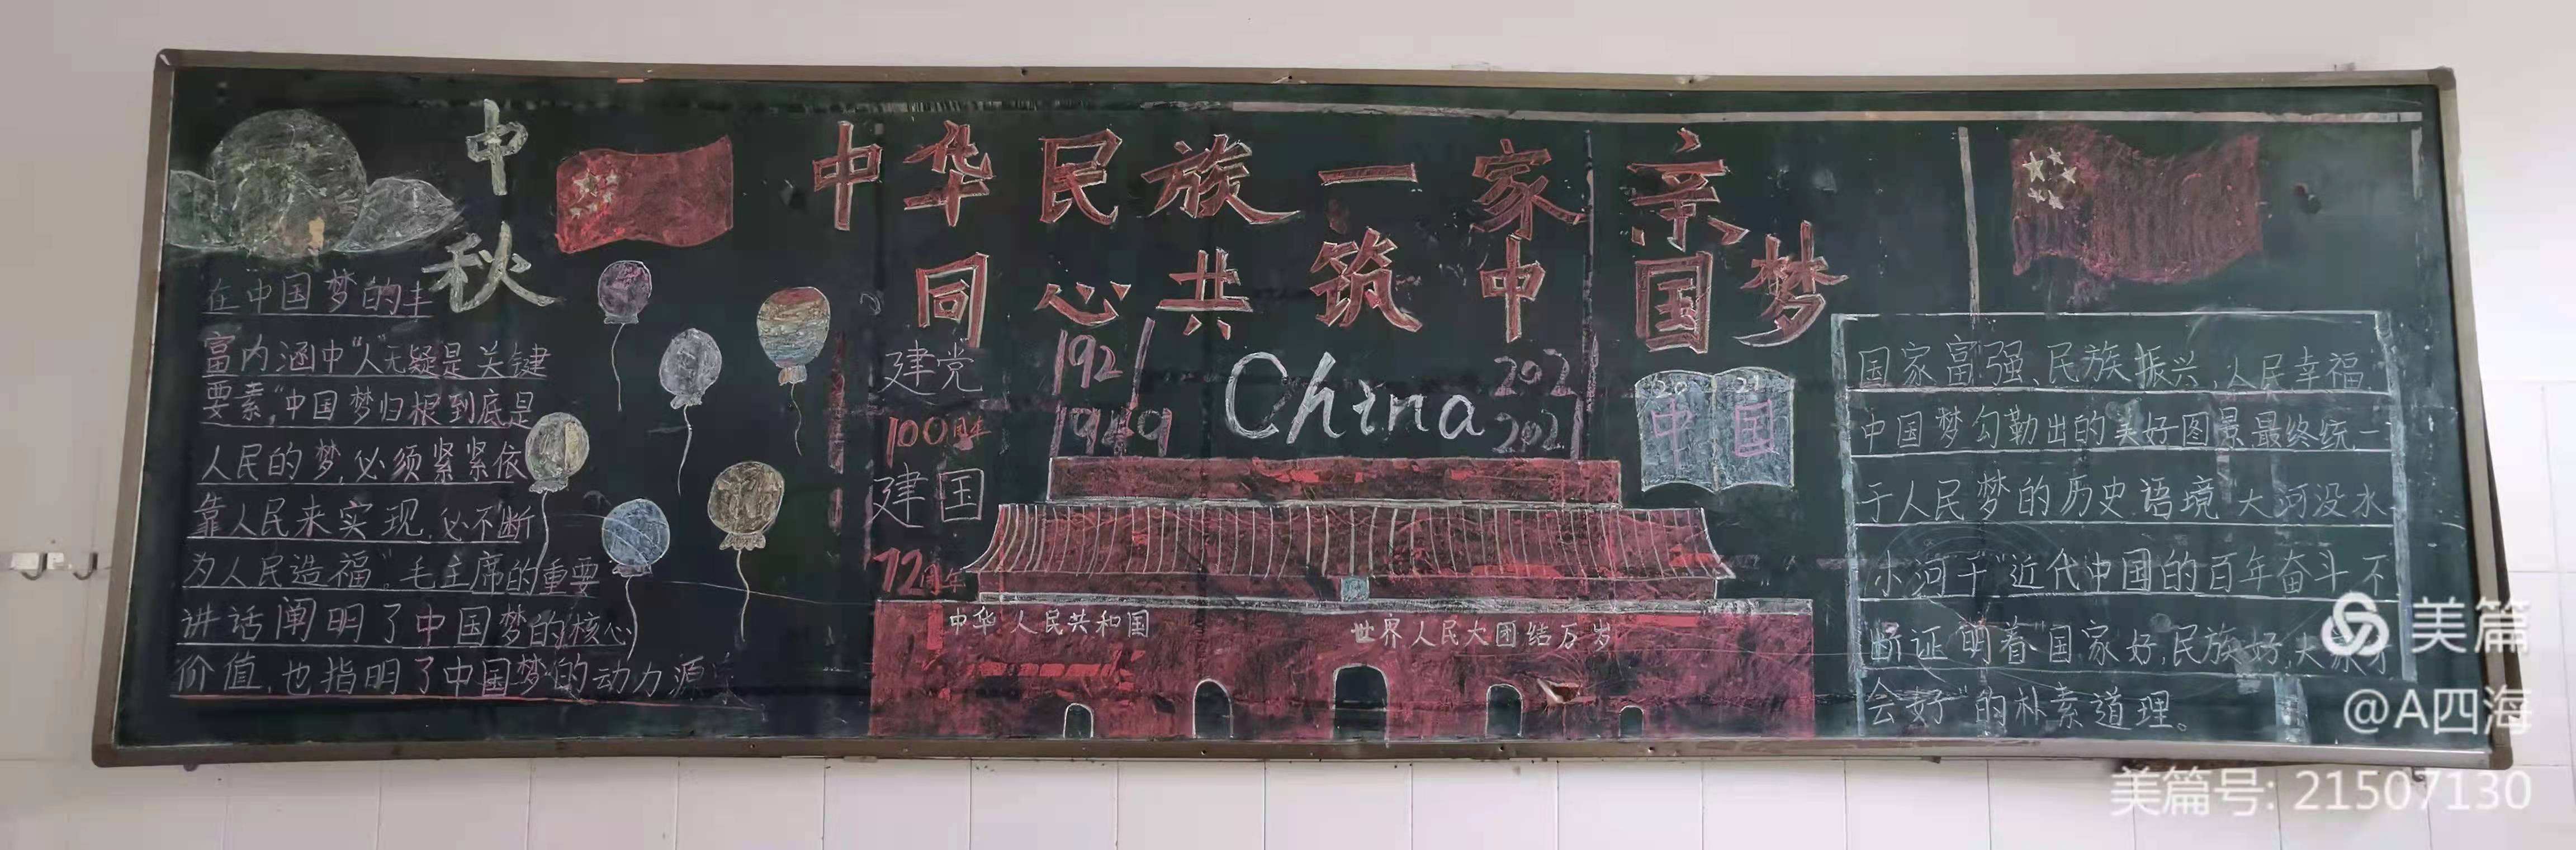 中秋
在中国梦的丰
富内涵中"人"无疑是关键
要素,"中国梦归根到底是
人民的梦,必须紧紧依
靠人民来实现,必不断
为人民造福",毛主席的重要
讲话阐明了中国梦的核心
价值,也指明了中国梦的动力源
中华民族一家亲
同心共筑中国梦
建党
100周年
建国
72周年
1921
1949
China
2021
2021
20 21
中国
中华人民共和国
世界人民大团结万岁
国家富强、民族振兴,人民幸福,
中国梦勾勒出的美好图景最终统一
于人民梦的历史语境 大河没水
小河干"近代中国的百年奋斗不
断证明着"国家好,民族好,大家才
会好"的朴素道理。
美篇
@A四海
美篇号: 21507130